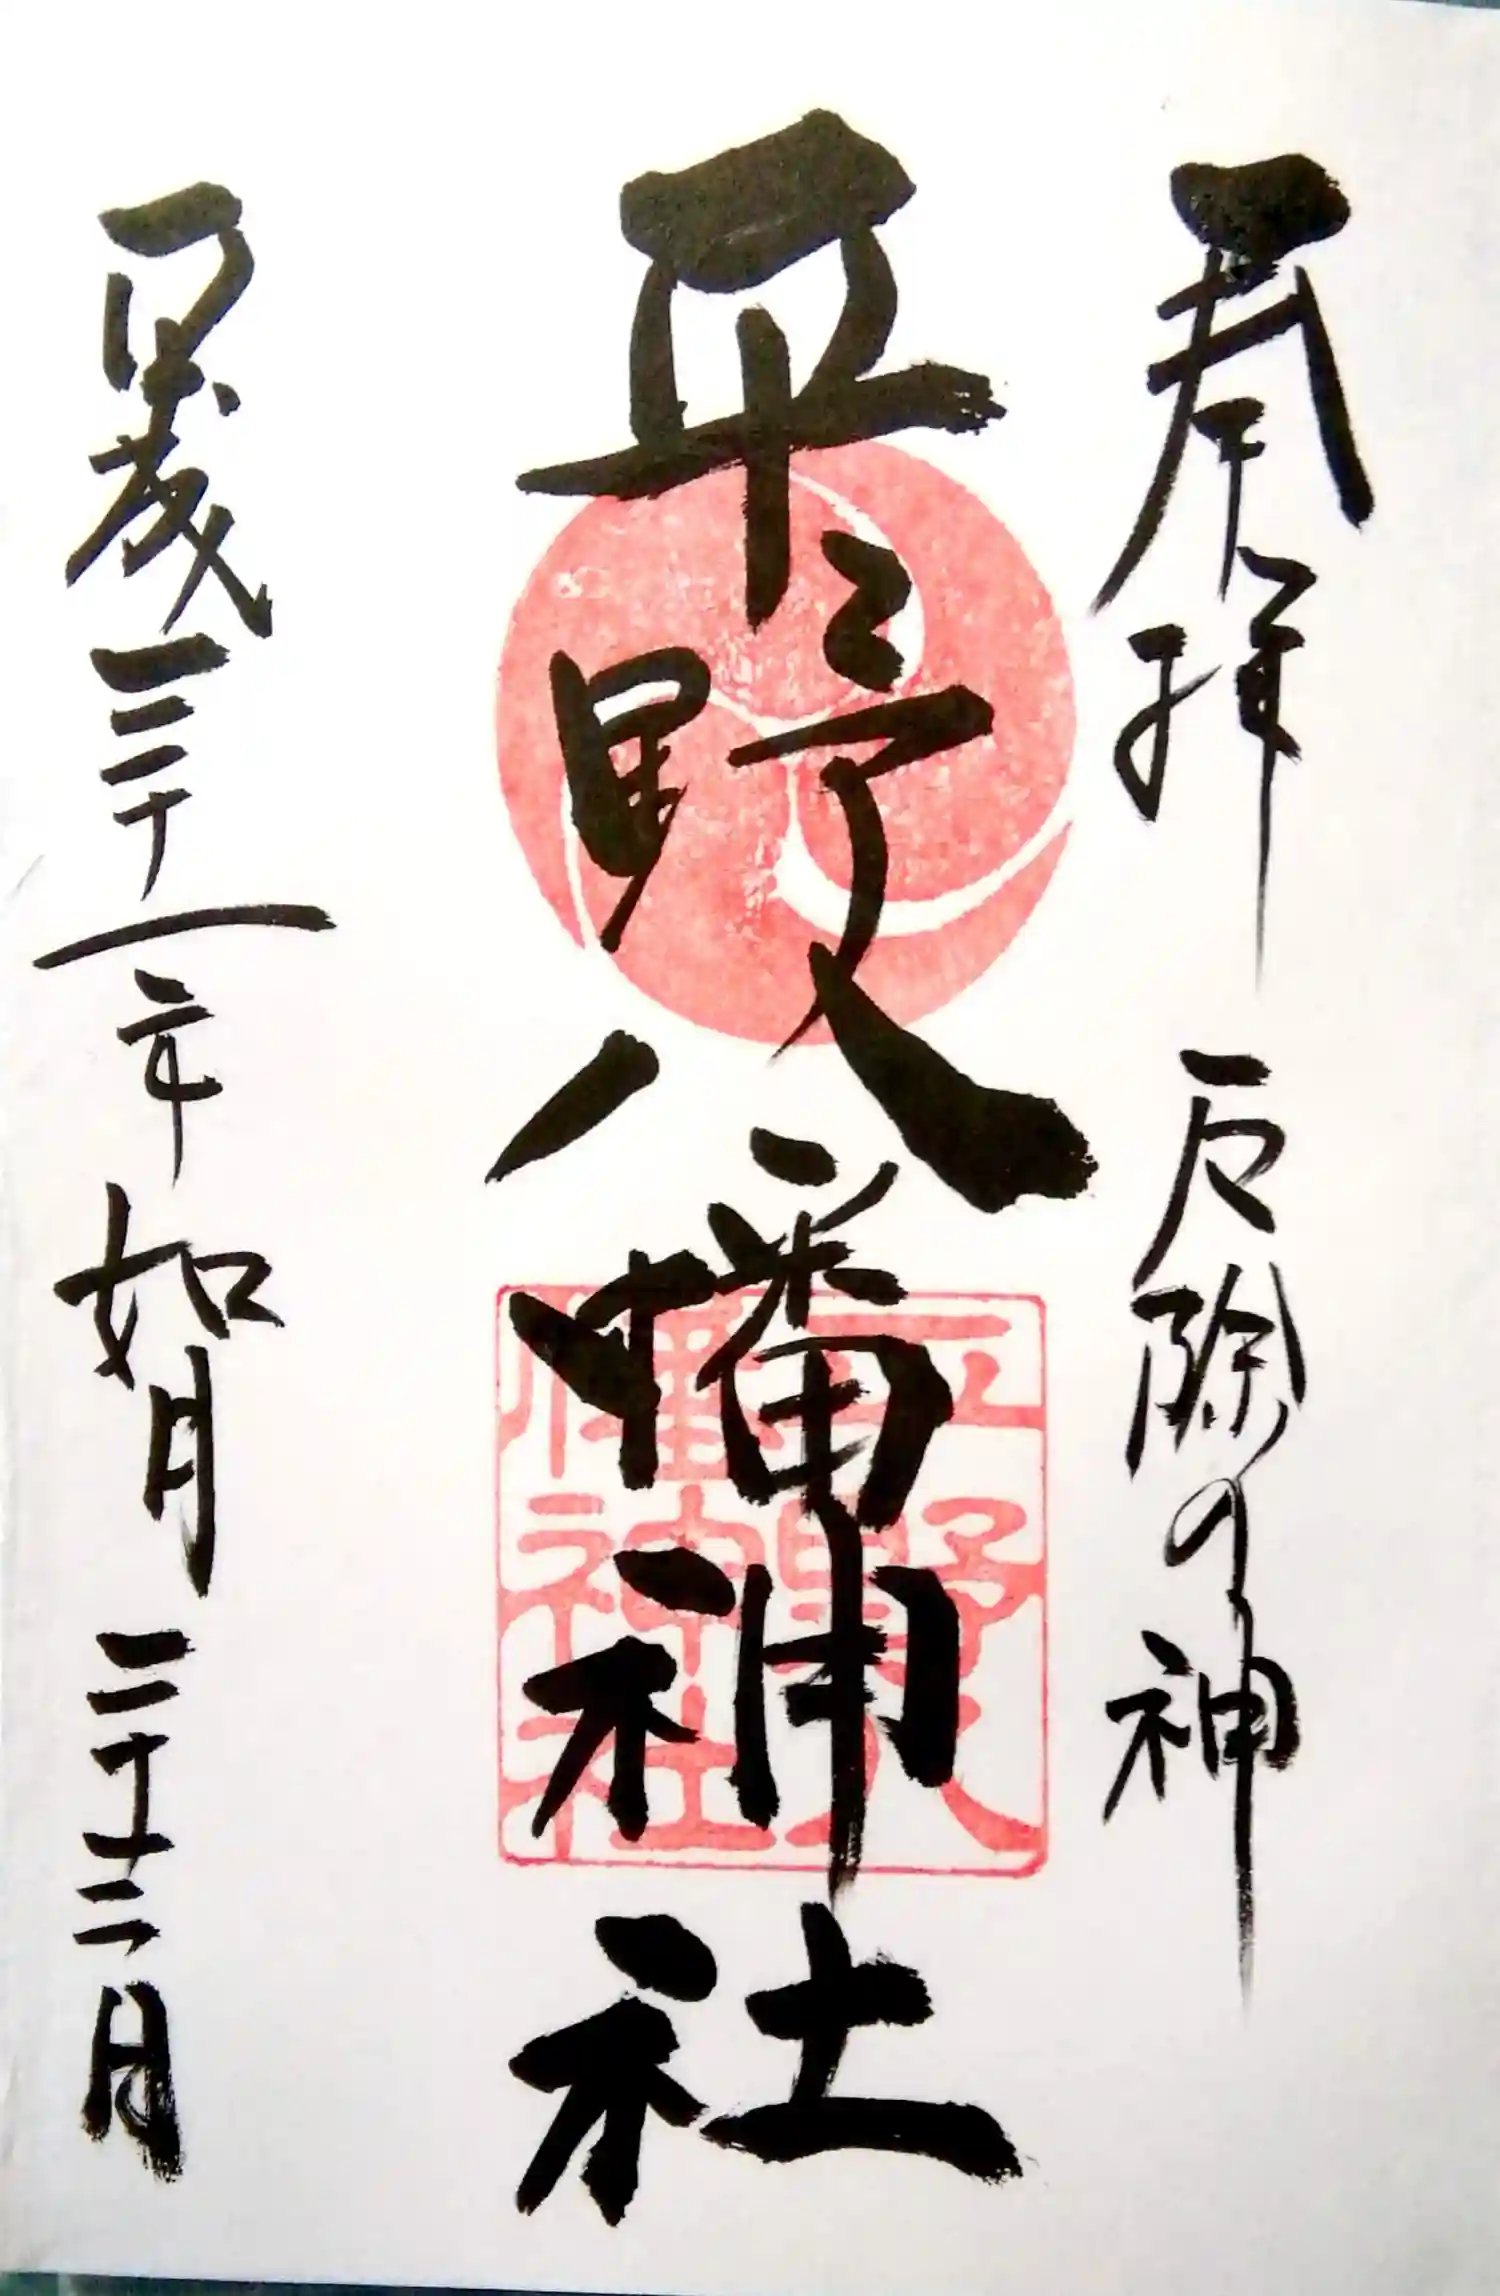 奉拝 厄除の神
平野八幡神社
平成三十一年如月二十三日
平野八
幡神社